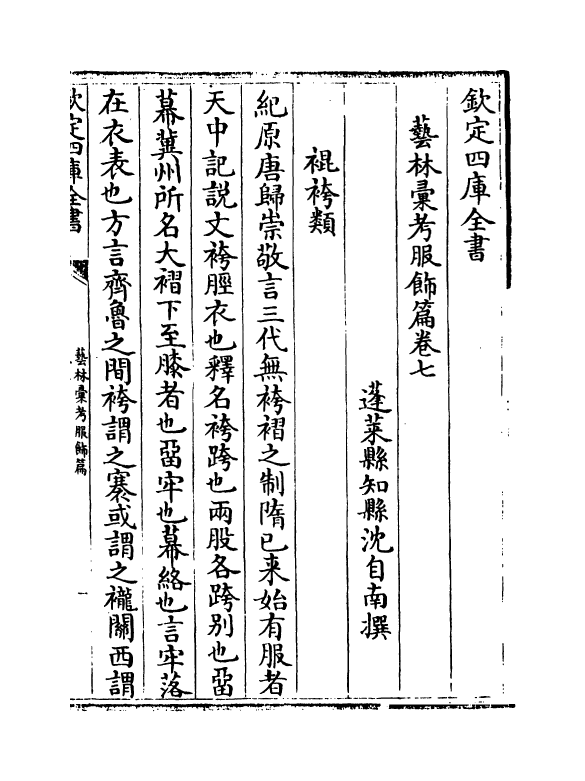 欽定四庫全書
藝林彚考服飾篇卷七
蓬萊縣知縣沈自南撰
裩袴類
紀原唐歸崇敬言三代無袴褶之制隋已来始有服者
天中記説文袴脛衣也釋名袴跨也兩股各跨别也畱
幕冀州所名大褶下至膝者也畱牢也幕絡也言牢落
在衣表也方言齊魯之間袴謂之褰或謂之襱關西謂
欽定四庫全書
藝林彚考服飾篇
一